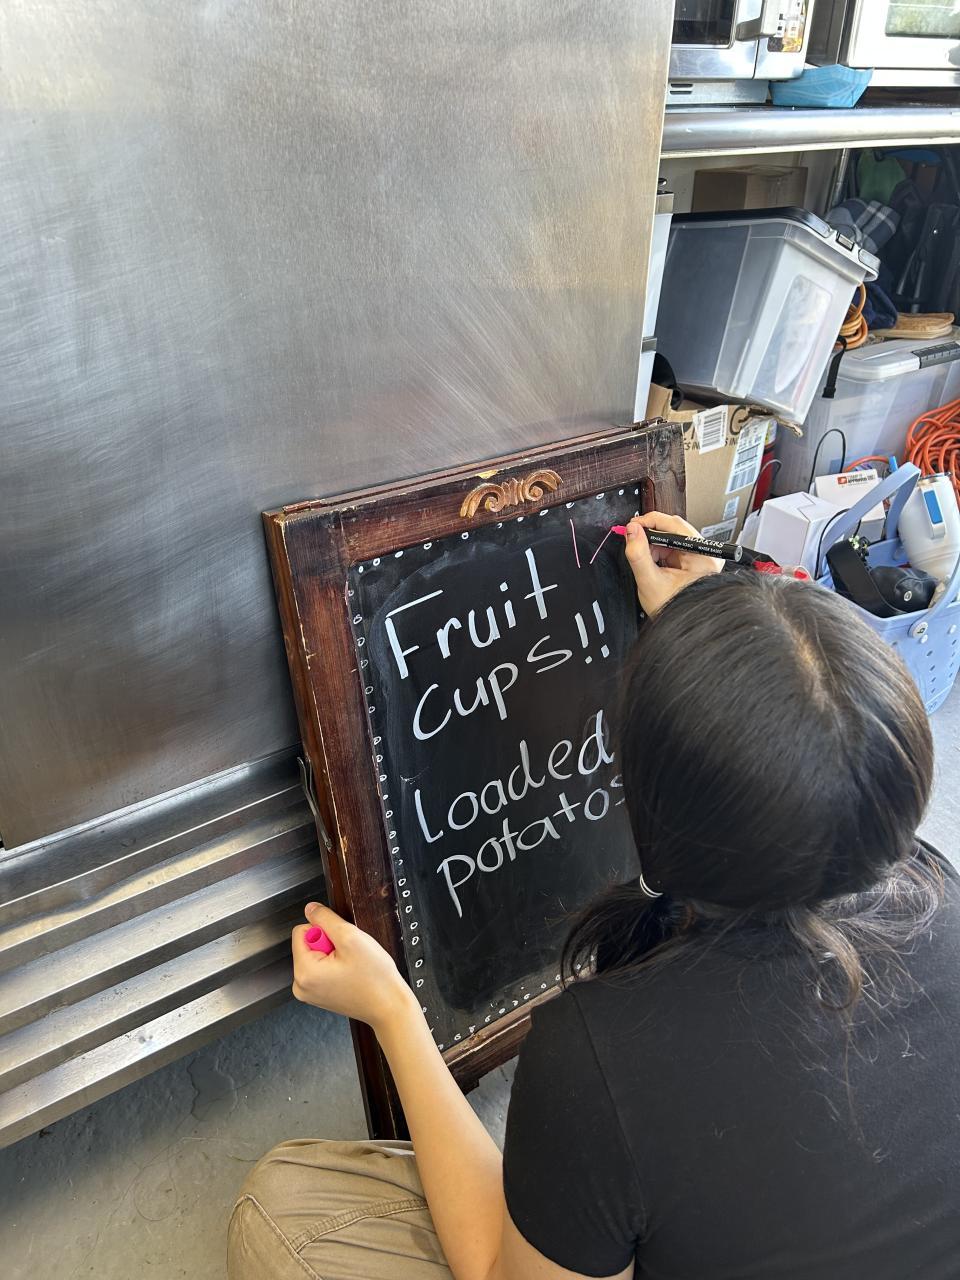 Fruit
Cups!!
Loaded
potatos
MARKERS